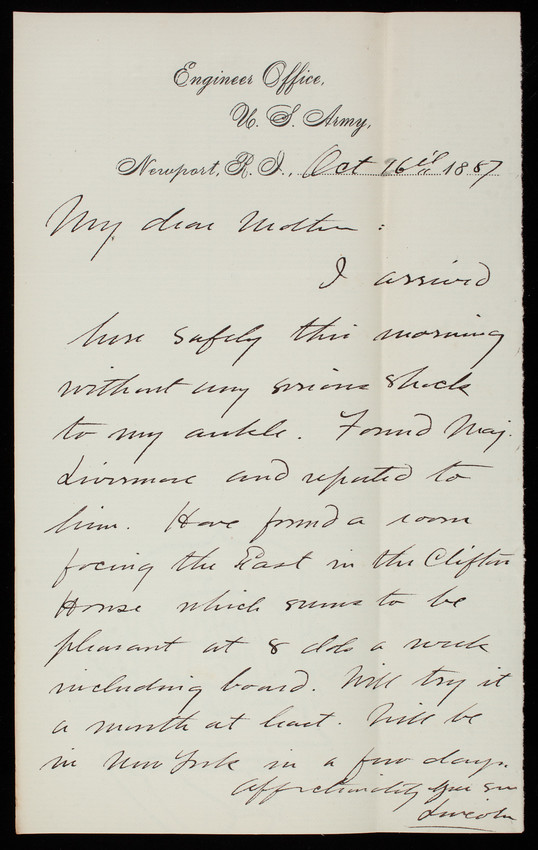 Engineer Office,
U. S. Army,
Newport, R. I., Oct 16th 1887
My dear Mother:
I arrived
here safely this morning
without any serious shock
to my ankle. Found Maj.
Livermore and reported to
him. Have found a room
facing the East in the Clifton
House which seems to be
pleasant at 8 dols a week
including board. Will try it
a month at least. Will be
in New York in a few days.
Affectionately your son
Lincoln